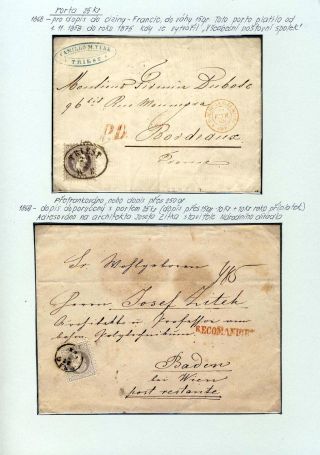 Porta 25 kr
1868 - pro dopis do ciziny - Francie, do váhy 15gr. Toto porto platilo od
1. 11. 1873 do roku 1875 kdy se vytvořil „Všeobecní poštovní spolek"
CAMILLO M. TERN
TRIEST
Monsieur Firmin Dubosc
96 bis Rue
P.D.
Bordeaux
France
TRIEST
Přefrankováno nebo dopis přes 250 gr
1868 - dopis doporučený s portem 25 kr (dopis přes 15gr 10kr + 10kr reko příplatek)
Adresováno na architekta Josefa Zítka stavitele Národního divadla
Sr Wohlgeboren
Herrn Josef Zitek
Architekt u. Professor am
Polytechnikum
RECOMANDIRT
Baden
bei Wien
post restante